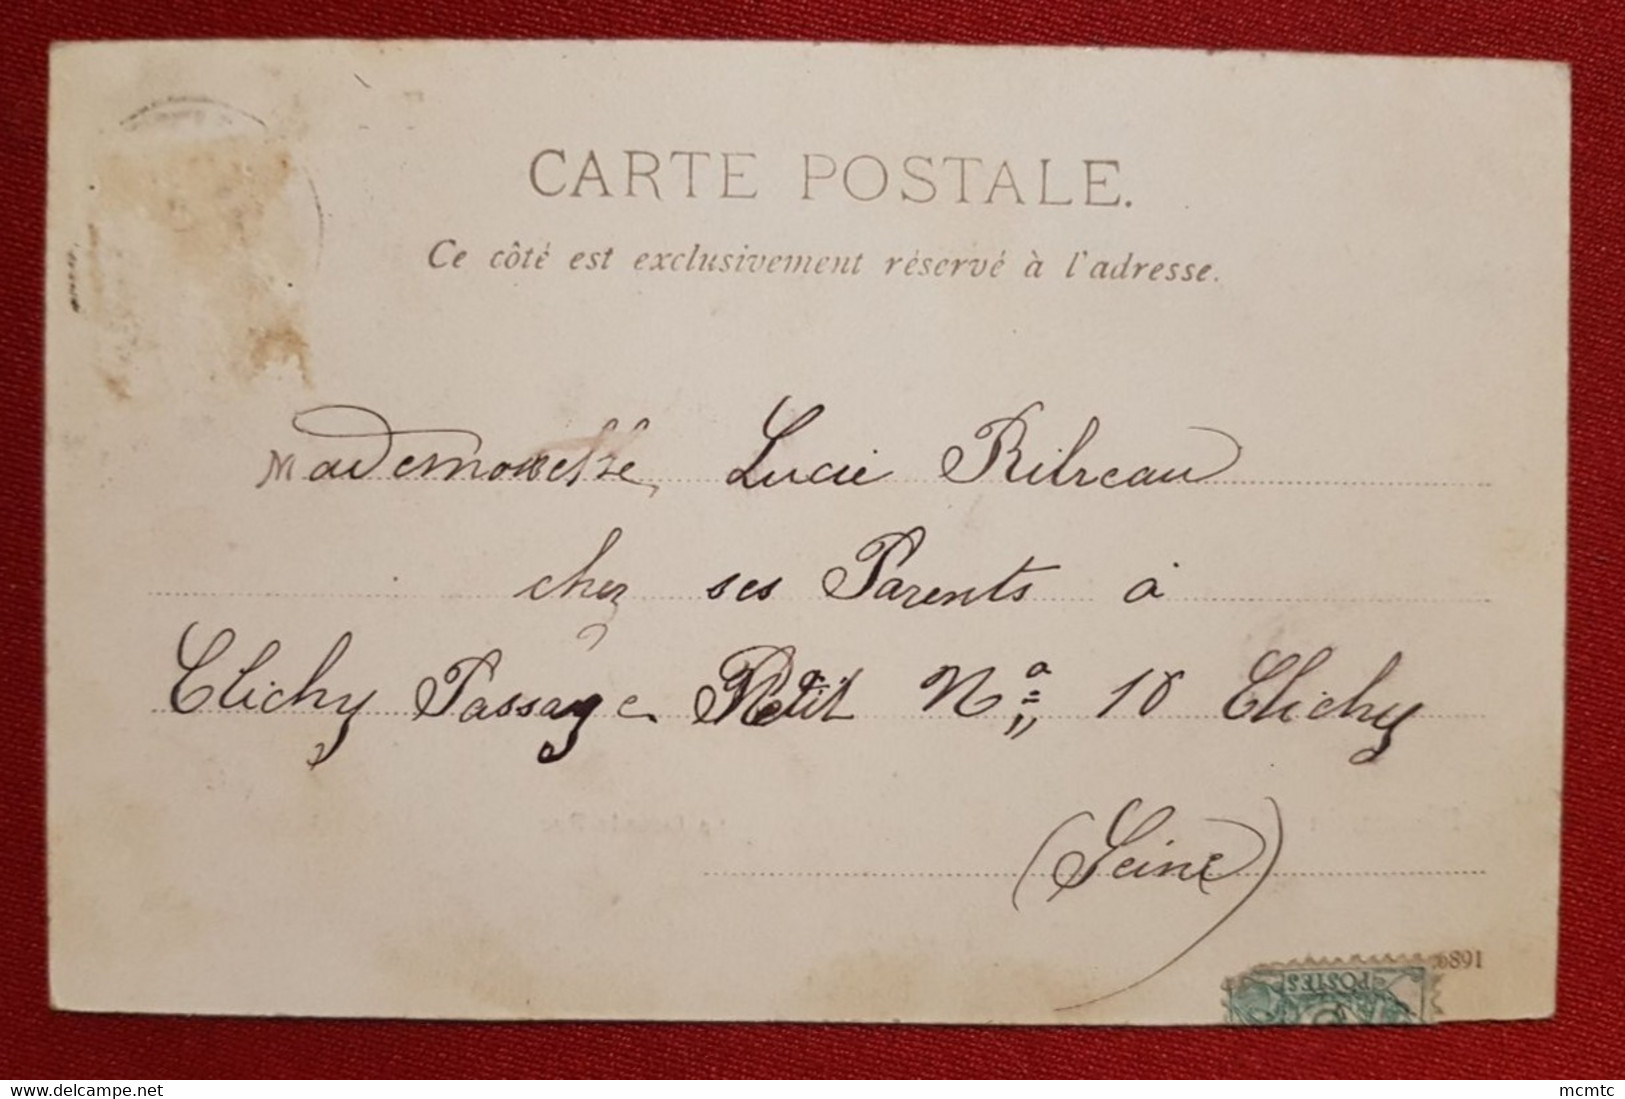 CARTE POSTALE.
Ce côté est exclusivement réservé à l'adresse.
Mademoiselle Lucie Ribreau
chez ses Parents à
Clichy Passage Petit No 10 Clichy
(Seine)
6891
POSTES
mcmtc